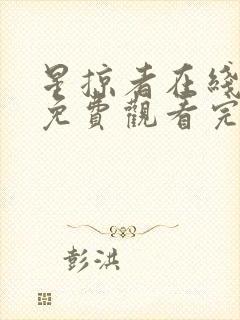 星掠者在綫
免費觀看完
彭洪